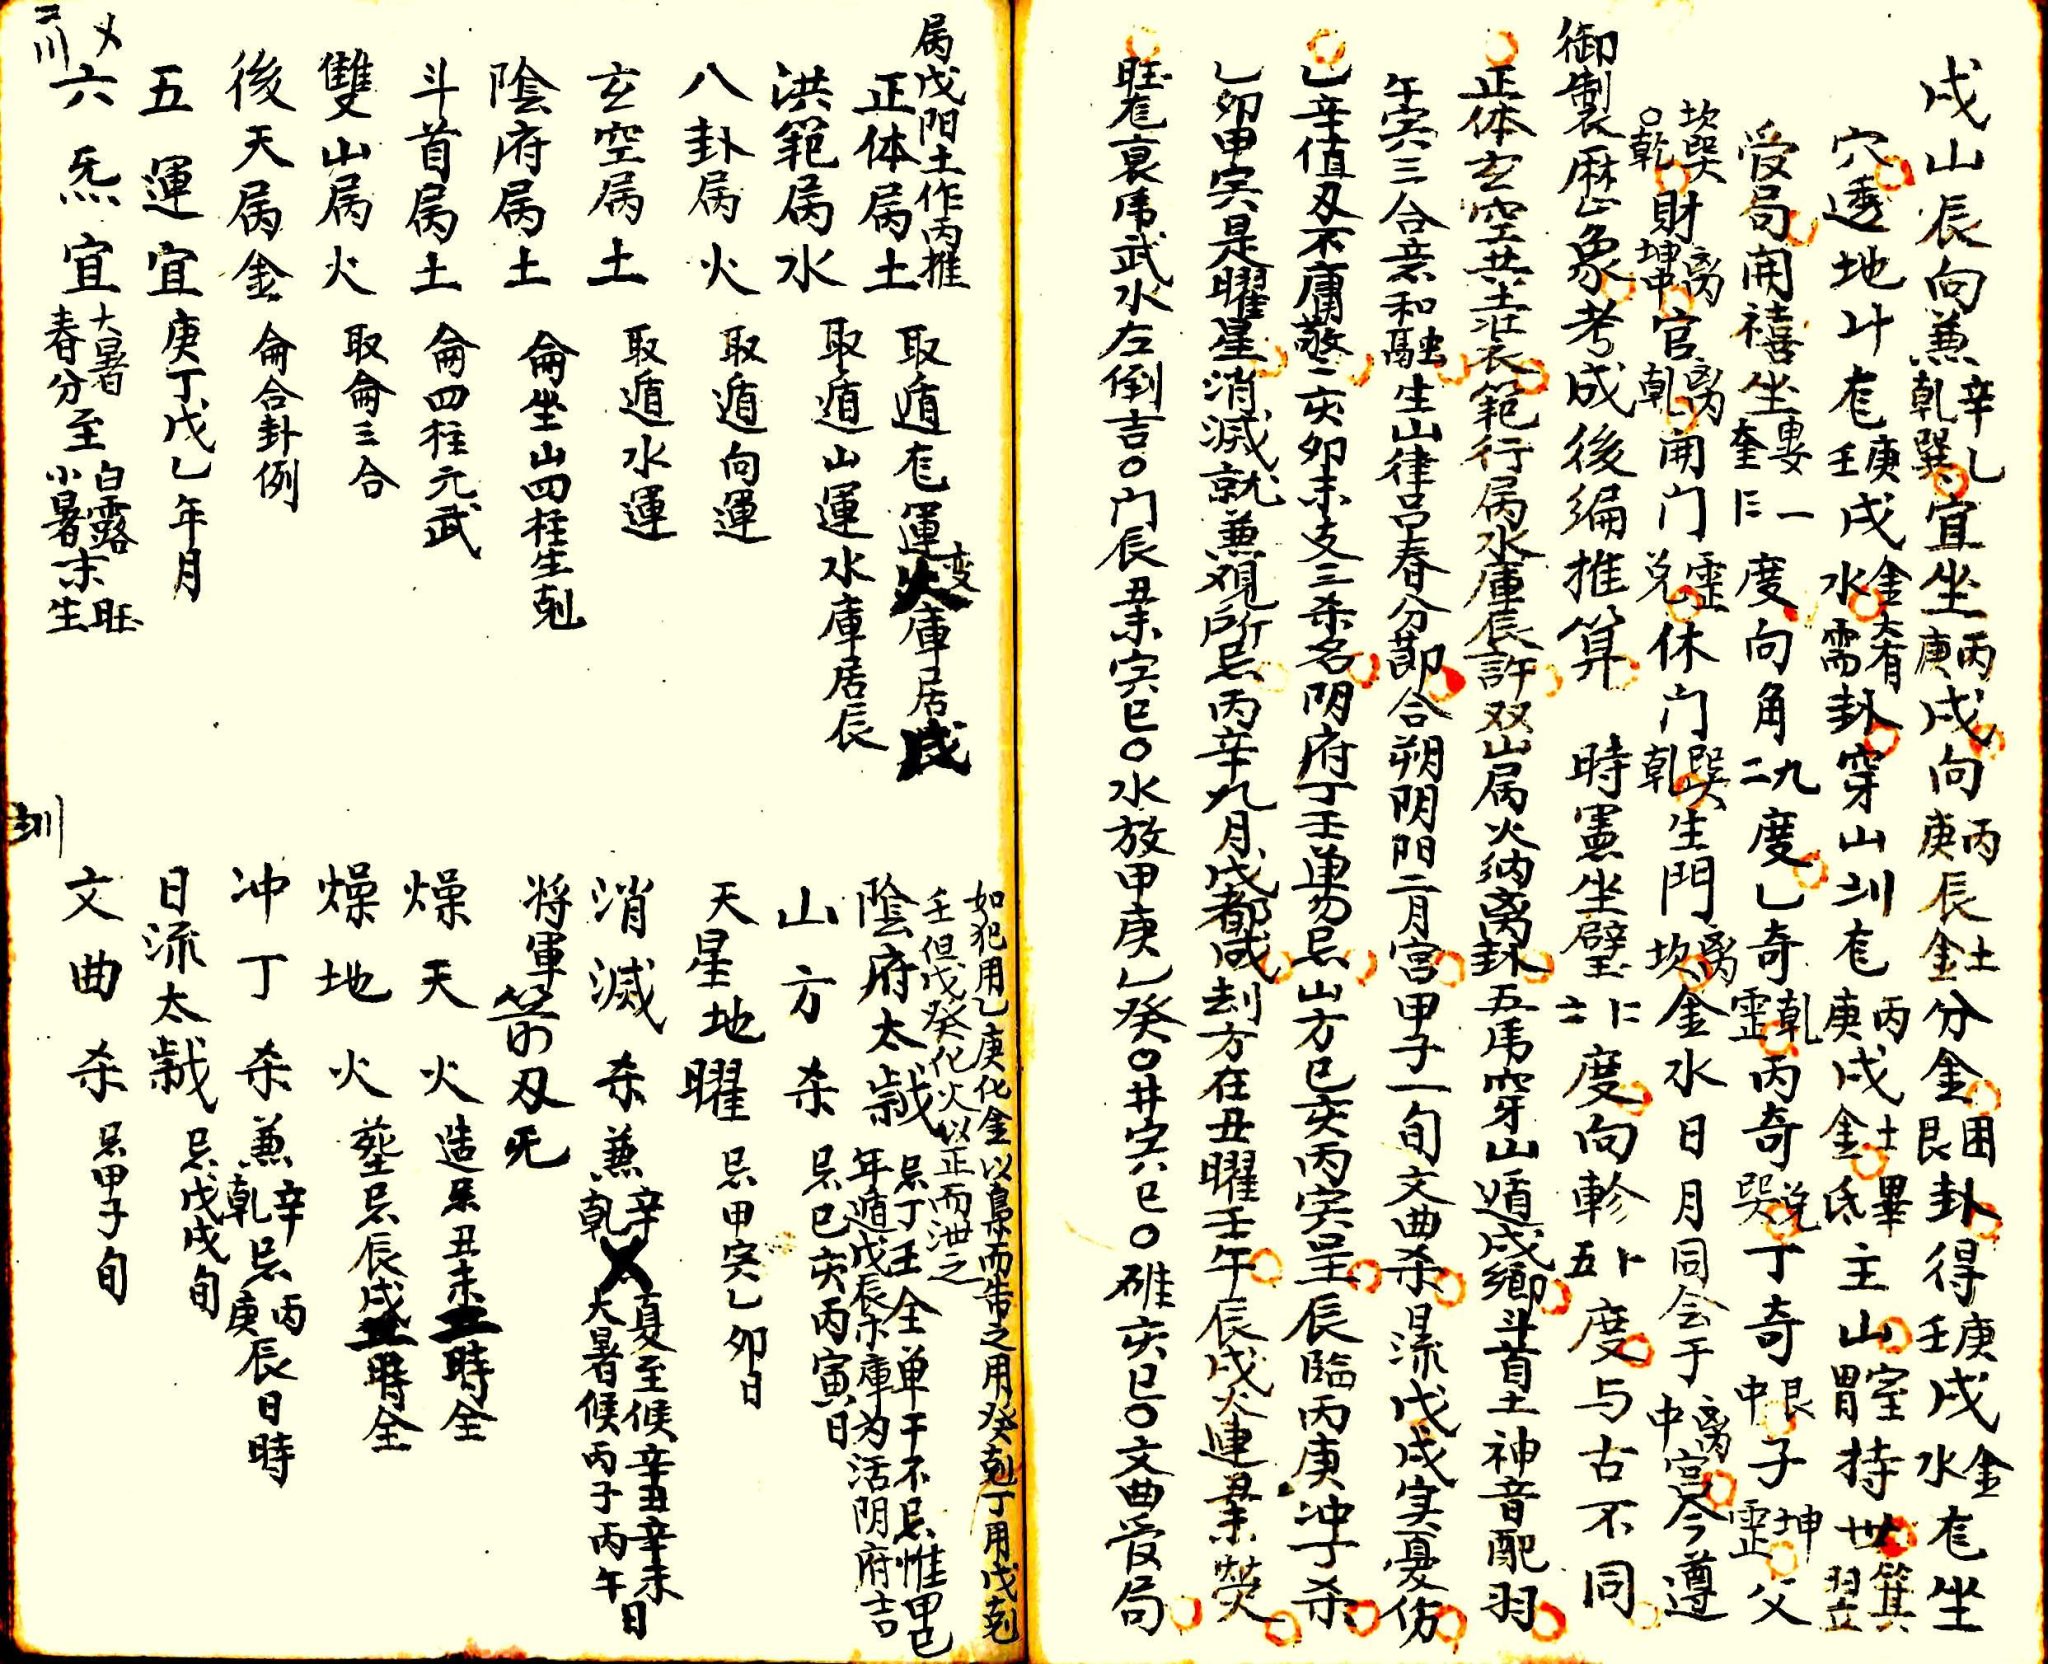 戌山辰向兼辛乙乾巽宜坐丙庚戌向丙庚辰土金分金困艮卦得庚壬戌金水龙坐
穴透地廿龙庚壬戌金水大有需卦穿山龙丙庚戌土金畢氐主山室胃持世箕翌
受局開禧坐婁奎一度向角九二度乙奇乾丙奇兑巽丁奇艮中子坤父
坎巽乾財离坤官离乾開门兑休门巽乾生門离坎金水日月同会于离中宫今遵
御製歴象考成後編推算 時憲坐壁度向軫五度与古不同
正体玄空共土洪範行属水庫辰許双山属火納离卦五虎穿山遁戌鄉斗首土神音配羽
午寅三合意和融生山律吕春分節合朔阴阳二月宫甲子一旬文曲杀日流戊戌实憂伤
乙辛值刃不庸敬亥卯未支三杀名阴府丁壬单勿忌山方巳亥丙寅呈辰臨丙庚冲丁杀
乙卯甲寅是曜星消滅就兼观所忌丙辛九月戊都咸刦方在丑曜壬午辰戌火連丑未熒
旺龙衰虎武水左倒吉○门辰丑未寅巳○水放甲庚乙癸○井寅巳○碓亥巳○文曲受局
属戊阳土作丙推
正体属土 取遁龙運变火庫居戌
洪範属水 取遁山運水庫居辰
八卦属火 取遁向運
玄空属土 取遁水運
陰府属土 侖坐山四柱生剋
斗首属土 侖四柱元武
雙山属火 取侖三合
後天属金 侖合卦例
五運宜庚丁戊乙年月
六炁宜大暑春分至白露小暑末旺生
如犯用乙庚化金以梟而制之用癸剋丁用戊剋
壬但戊癸化火以正而泄之
陰府太歲 忌丁壬全单干不忌惟甲己年遁戊辰木庫为活阴府吉
山方杀 忌巳亥丙寅日
天星地曜 忌甲寅乙卯日
消滅杀兼辛乾 夏至候辛丑辛未大暑候丙子丙午日
将軍箭刃无
燥天火 造忌丑未時全
燥地火 塟忌辰戌時全
冲丁杀兼辛乾忌丙庚辰日時
日流太歲 忌戊戌旬
文曲杀 忌甲子旬